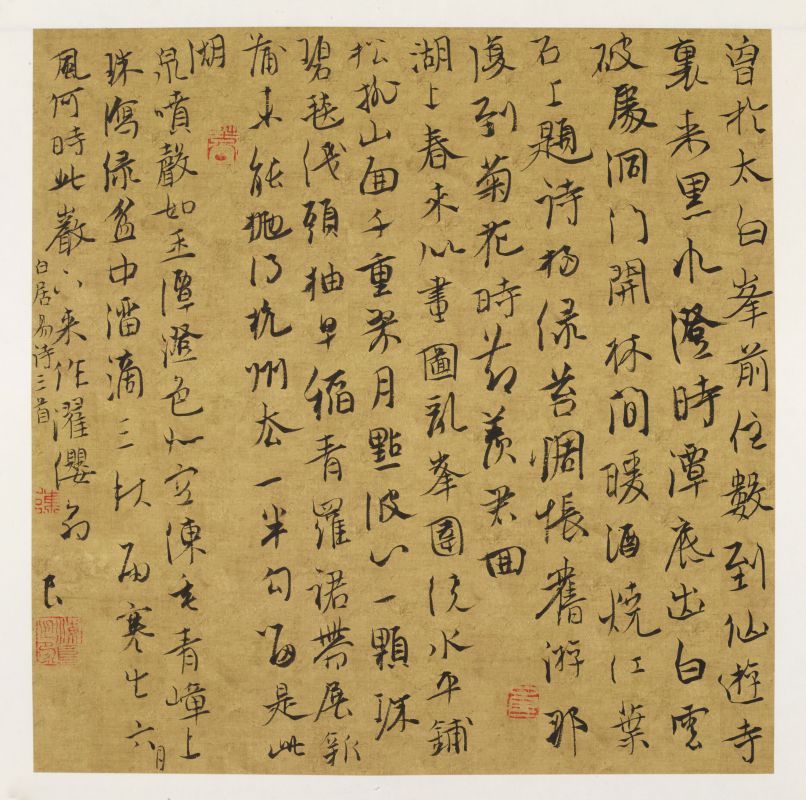 曾於太白峯前住數到仙遊寺
裏来黑水澄時潭底出白雲
破處洞门開林间暖酒燒红葉
石上題诗扫绿苔惆悵舊游那
復到菊花時节羨君回
湖上春来似畫圖乱峯围绕水平鋪
松排山面千重翠月點波心一顆珠
碧毯线頭抽早稻青羅裙帶展新
蒲未能抛得杭州去一半勾留是此
湖
泉噴聲如玉潭澄色似空練垂青嶂上
珠瀉绿盆中溜滴三秋雨寒生六月
風何時此巖下来作濯缨翁
白居易诗三首